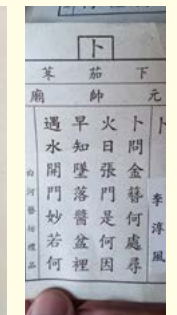 卜
下茄苳
元帥廟
卜
李淳風
卜問金簪何處尋
火日張門是何因
早知墜落醬盆裡
遇水開門妙若何